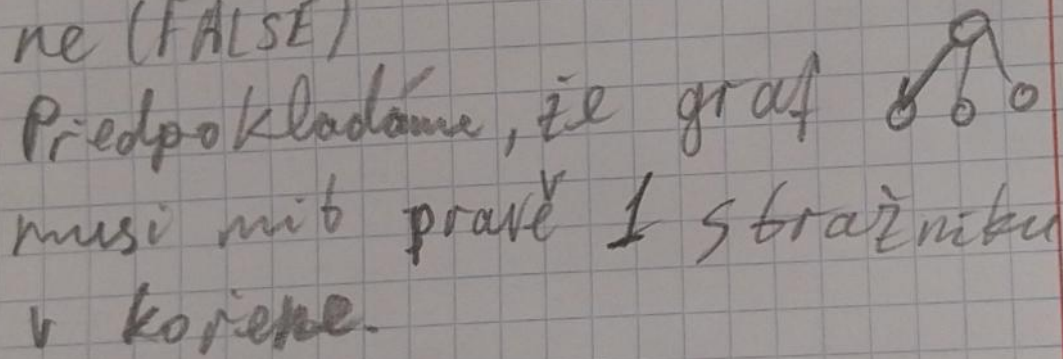 ne (FALSE)
Předpokládáme, že graf
musi mit pravě 1 stražniku
v kořene.